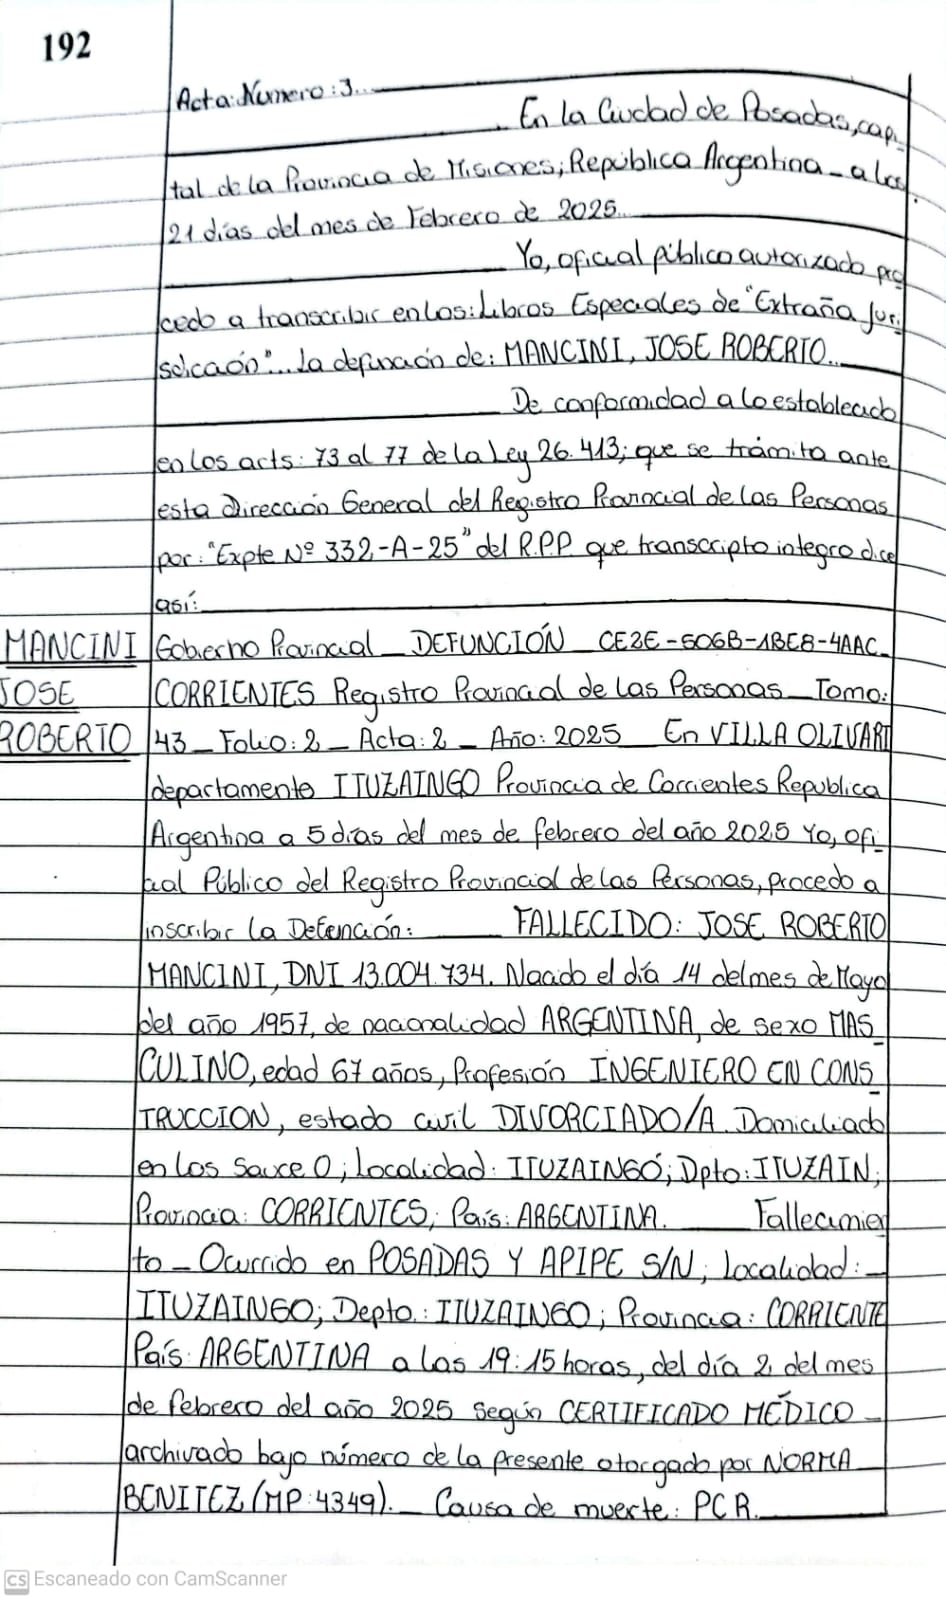 192
Acta: Numero: 3.
En la Ciudad de Posadas, capi_
tal de la Provincia de Misiones; República Argentina _ a los
21 días del mes de Febrero de 2025.
Yo, oficial público autorizado pro
cedo a transcribir en los: Libros Especiales de "Extraña Juri
sdicción"... La defunción de: MANCINI, JOSE ROBERTO.
De conformidad a lo establecido
en los arts: 73 al 77 de la Ley 26.413; que se trámita ante
esta Dirección General del Registro Provincial de las Personas
por: "Expte Nº 332-A-25" del R.P.P. que transcripto integro dice
así:
MANCINI
JOSE
ROBERTO
Gobierno Provincial _ DEFUNCIÓN CE2E-506B-1BE8-4AAC_
CORRIENTES Registro Provincial de las Personas _ Tomo:
43 _ Folio: 2 _ Acta: 2 _ Año: 2025 En VILLA OLIVARI
departamento ITUZAINGO Provincia de Corrientes Republica
Argentina a 5 días del mes de febrero del año 2025 Yo, ofi_
cial Público del Registro Provincial de las Personas, procedo a
inscribir la Defención:
FALLECIDO: JOSE ROBERTO
MANCINI, DNI 13.004.734. Nacido el día 14 del mes de Mayo
del año 1957, de nacionalidad ARGENTINA, de sexo MAS_
CULINO, edad 67 años, Profesión INGENIERO EN CONS_
TRUCCION, estado civil DIVORCIADO/A. Domiciliado
en Los Sauce 0; Localidad: ITUZAINGÓ; Dpto: ITUZAIN;
Provincia: CORRIENTES; País: ARGENTINA. Fallecimien
to _ Ocurrido en POSADAS Y APIPE S/N; Localidad: _
ITUZAINGO; Depto.: ITUZAINGO; Provincia: CORRIENTE
País: ARGENTINA a las 19:15 horas, del día 2 del mes
de febrero del año 2025 Según CERTIFICADO MÉDICO _
archivado bajo número de la presente otorgado por NORMA
BENITEZ (MP: 4349). _ Causa de muerte: PCR.
CS Escaneado con CamScanner